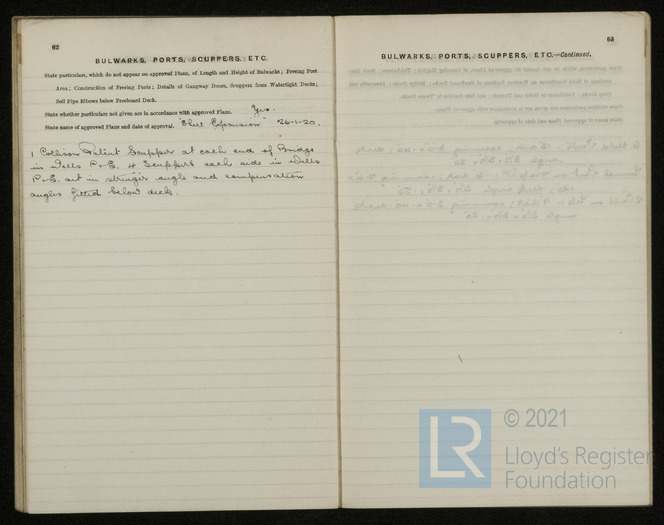 62
BULWARKS, PORTS, SCUPPERS, ETC.
State particulars, which do not appear on approved Plans, of Length and Height of Bulwarks; Freeing Port
Area; Construction of Freeing Ports; Details of Gangway Doors, Scuppers from Watertight Decks;
Soil Pipe Elbows below Freeboard Deck.
State whether particulars not given are in accordance with approved Plans. Yes.
State name of approved Plans and date of approval. "Shell Expansion" 26-1-20.
1 Collison Patent Scupper at each end of Bridge
in Wells P.&S. 4 Scuppers each side in Wells
P.&S. cut in stringer angle and compensation
angles fitted below deck.
63
BULWARKS, PORTS, SCUPPERS, ETC.—Continued.
LR
© 2021
Lloyd's Register
Foundation